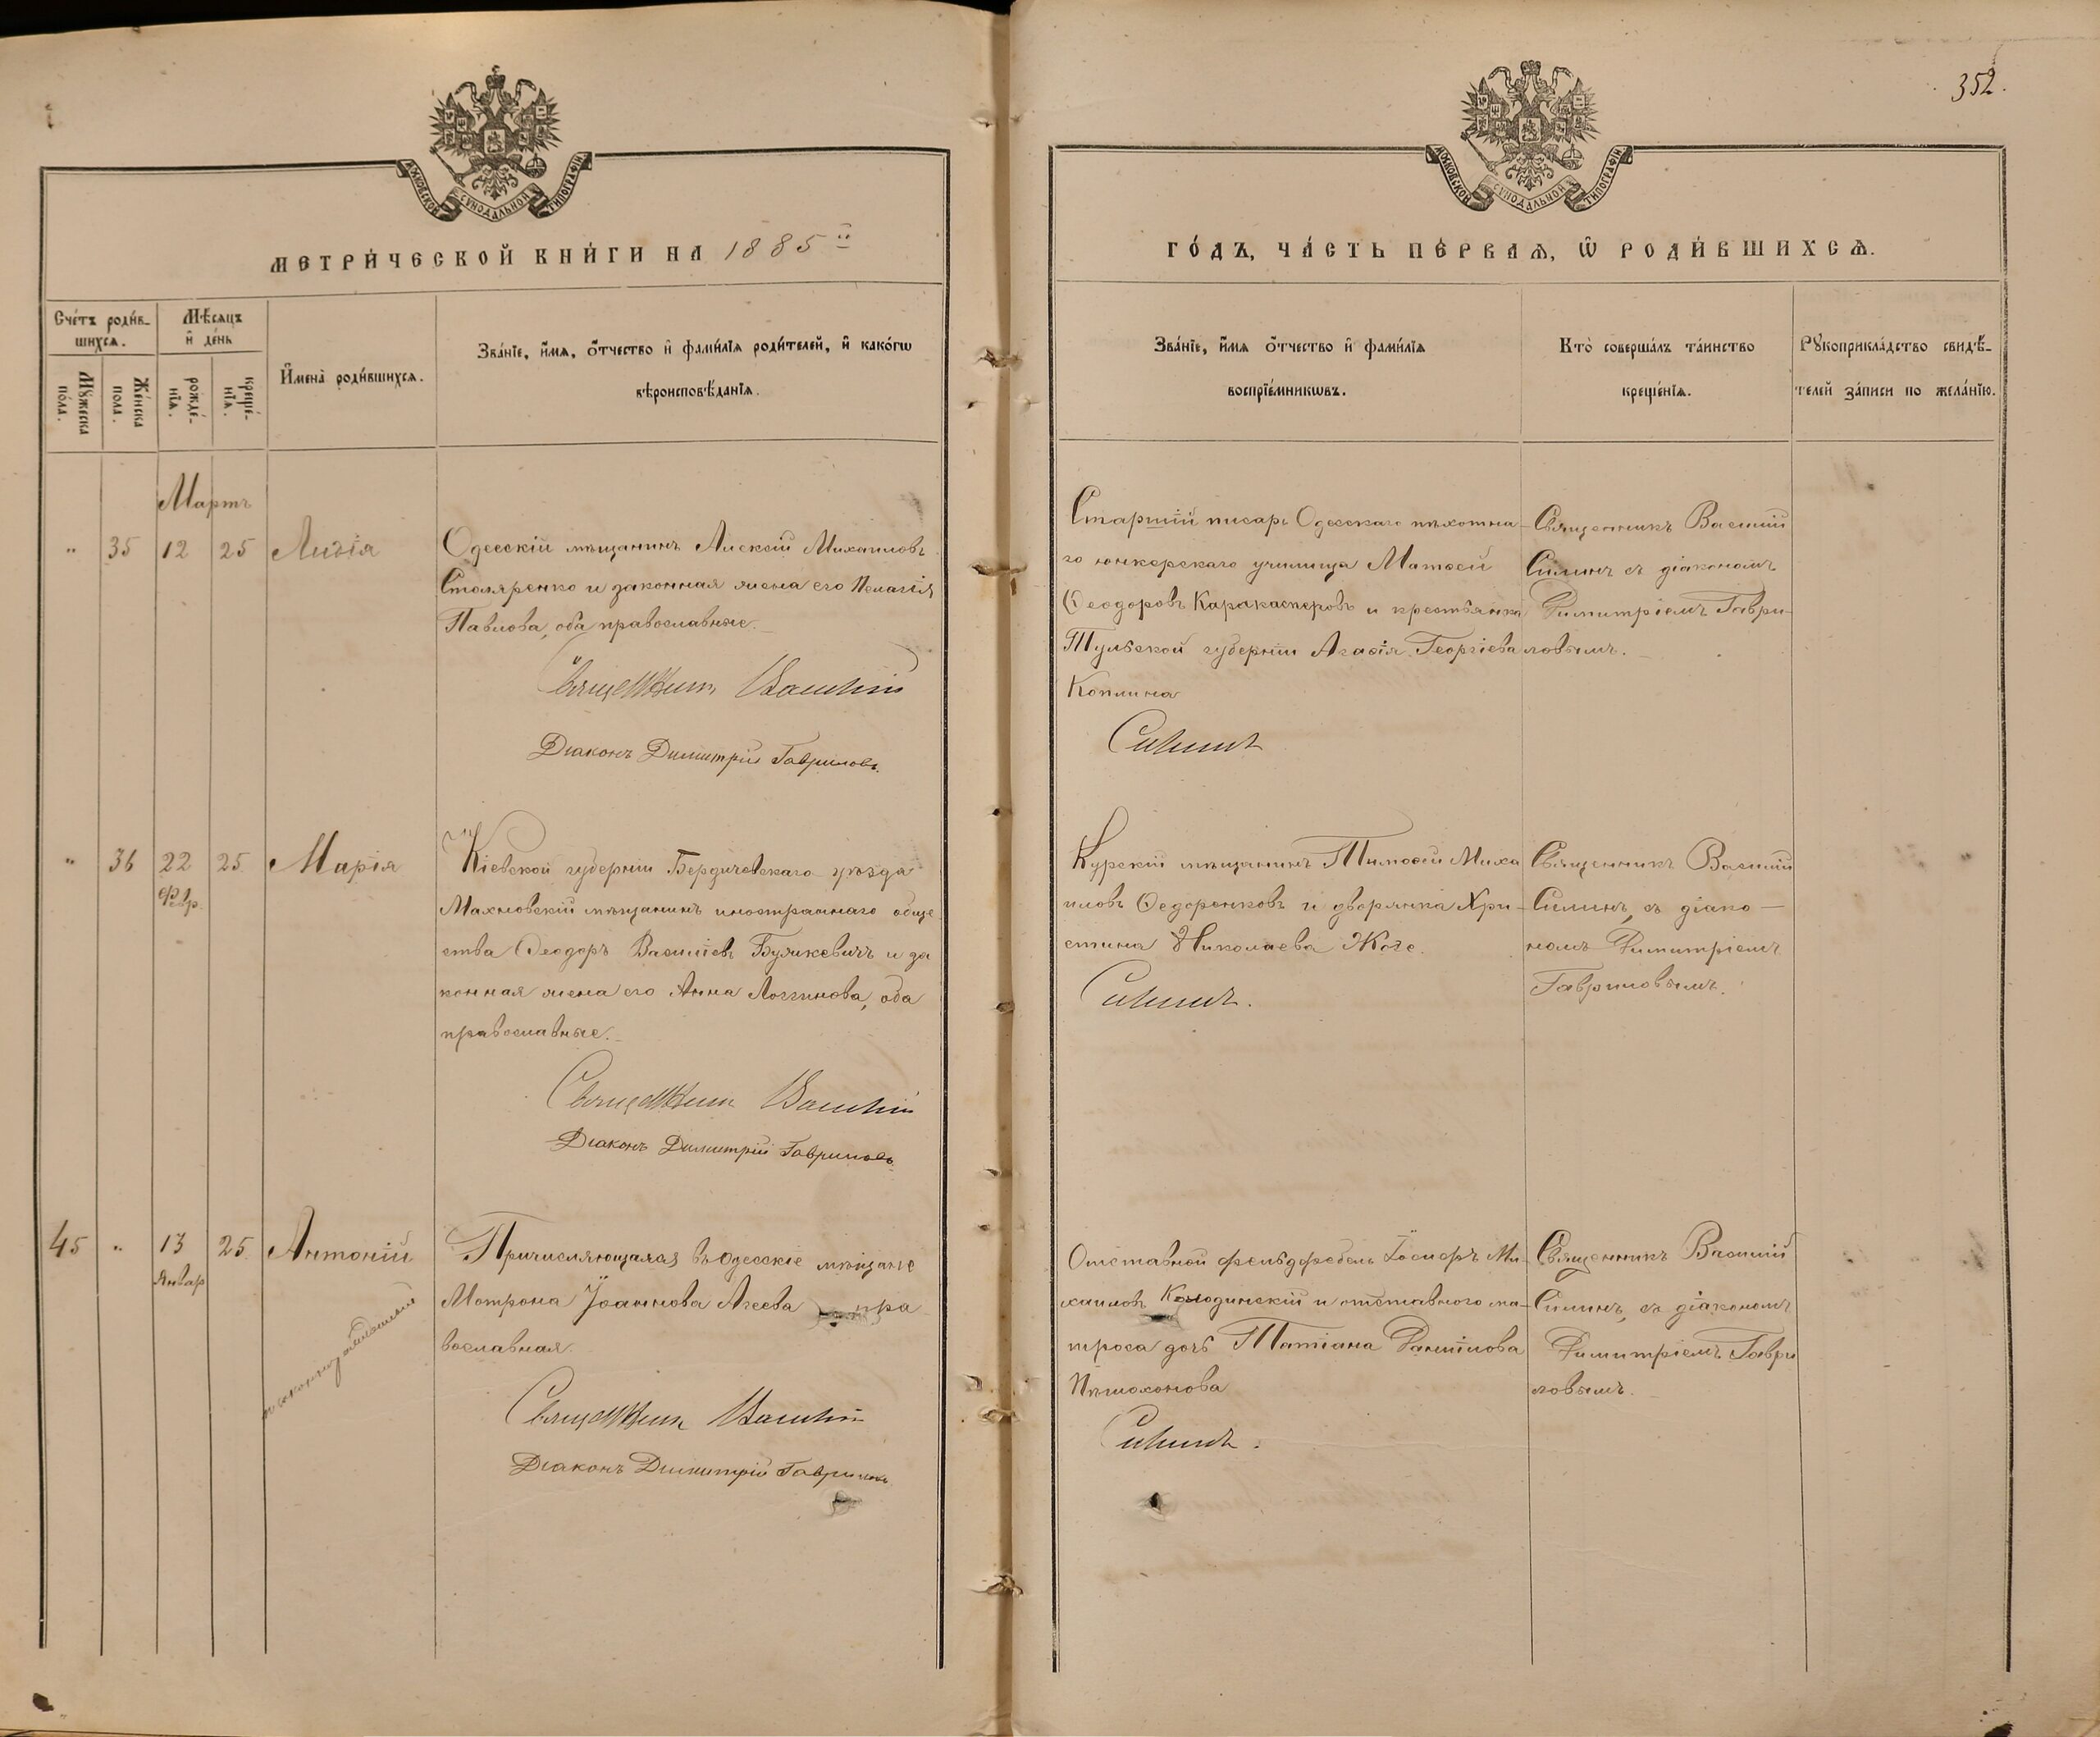 352.
МОСКОВСКОЙ СѴНОДАЛЬНОЙ ТИПОГРАФІИ
МОСКОВСКОЙ СѴНОДАЛЬНОЙ ТИПОГРАФІИ
МЕТРИ́ЧЕСКОЙ КНИ́ГИ НА 1885й
ГО́ДЪ, ЧА́СТЬ ПЕ́РВАѦ, Ѿ РОДИ́ВШИХСѦ.
Сче́тъ роди́в-
шихсѧ.
Мѣ́сѧцъ
и҆ де́нь
Мꙋ́жеска
по́ла.
Же́нска
пола.
рожде́-
нїѧ.
креще́-
нїѧ.
И҆мена̀ роди́вшихсѧ.
Зва́нїе, и҆́мѧ, ѻ҆́тчество и҆ фами́лїѧ роди́телей, и҆ како́гѡ
вѣроисповѣ́данїѧ.
Зва́нїе, и҆́мѧ ѻ҆́тчество и҆ фами́лїѧ
воспрїе́мникѡвъ.
Кто̀ соверша́лъ та́инство
креще́нїѧ.
Рꙋкоприкла́дство свидѣ́-
телей за́писи по жела́нїю.
Мартъ
" 35 12 25 Лидія
Одесскій мѣщанинъ Алексѣй Михаиловъ
Столяренко и законная жена его Пелагія
Павлова, оба православные.
Священникъ Василій
Діаконъ Димитрій Гавриловъ.
Старшій писарь Одесскаго пѣхотна-
го юнкерскаго училища Матѳей
Ѳеодоровъ Каракасперовъ и крестьянка
Тульской губерніи Агаѳія Георгіева
Коплина
Силинъ
Священникъ Василій
Силинъ съ діакономъ
Димитріемъ Гаври-
ловымъ.
" 36 22 25 Марія
Февр.
Кіевской губерніи Бердичевскаго уѣзда
Махновскій мѣщанинъ иностраннаго обще
ства Ѳеодоръ Василіевъ Булкевичъ и за
конная жена его Анна Логгинова, оба
православные.
Священникъ Василій
Діаконъ Димитрій Гавриловъ.
Курскій мѣщанинъ Тимоѳей Миха
иловъ Ѳедоренковъ и дворянка Хри-
стина Николаева Жозе.
Силинъ.
Священникъ Василій
Силинъ, съ діако-
номъ Димитріемъ
Гавриловымъ.
45 " 13 25 Антоній
Январ
Причисляющаяся въ Одесскіе мѣщане
Мотрона Іоаннова Агеева пра
вославная.
Священникъ Василій
Діаконъ Димитрій Гавриловъ
Отставной фельдфебель Іосифъ Ми-
хаиловъ Колодинскій и отставного ма-
троса дочь Татіана Даниилова
Пѣшохонова
Силинъ.
Священникъ Василій
Силинъ, съ діакономъ
Димитріемъ Гаври
ловымъ.